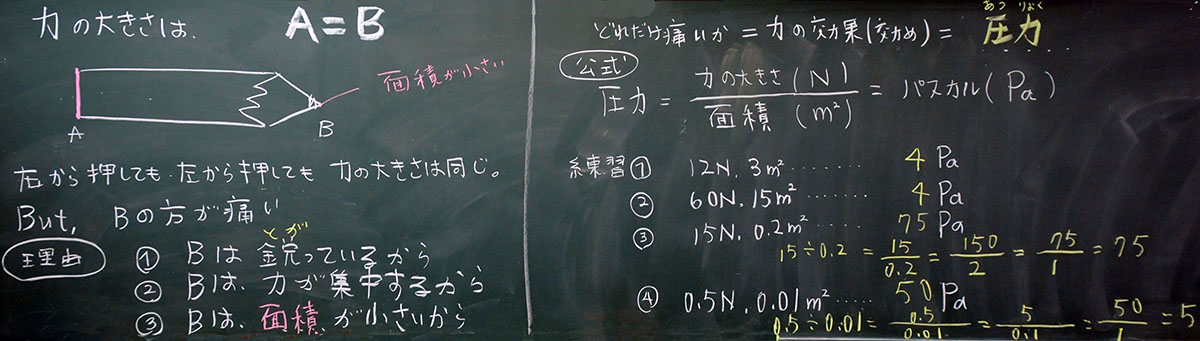 力の大きさは、 A=B
面積が小さい
A
B
右から押しても左から押しても 力の大きさは同じ。
But, Bの方が痛い
理由
とが
① Bは鋭っているから
② Bは、力が集中するから
③ Bは、面積が小さいから
あつ りょく
どれだけ痛いか = 力の効果(効め) = 圧力
公式
圧力 = 力の大きさ(N) / 面積 (m²) = パスカル(Pa)
練習① 12N, 3m² ...... 4 Pa
② 60N, 15m² ...... 4 Pa
③ 15N, 0.2m² ...... 75 Pa
15÷0.2 = 15/0.2 = 150/2 = 75/1 = 75
④ 0.5N, 0.01m² ..... 50 Pa
0.5÷0.01 = 0.5/0.01 = 5/0.1 = 50/1 = 5